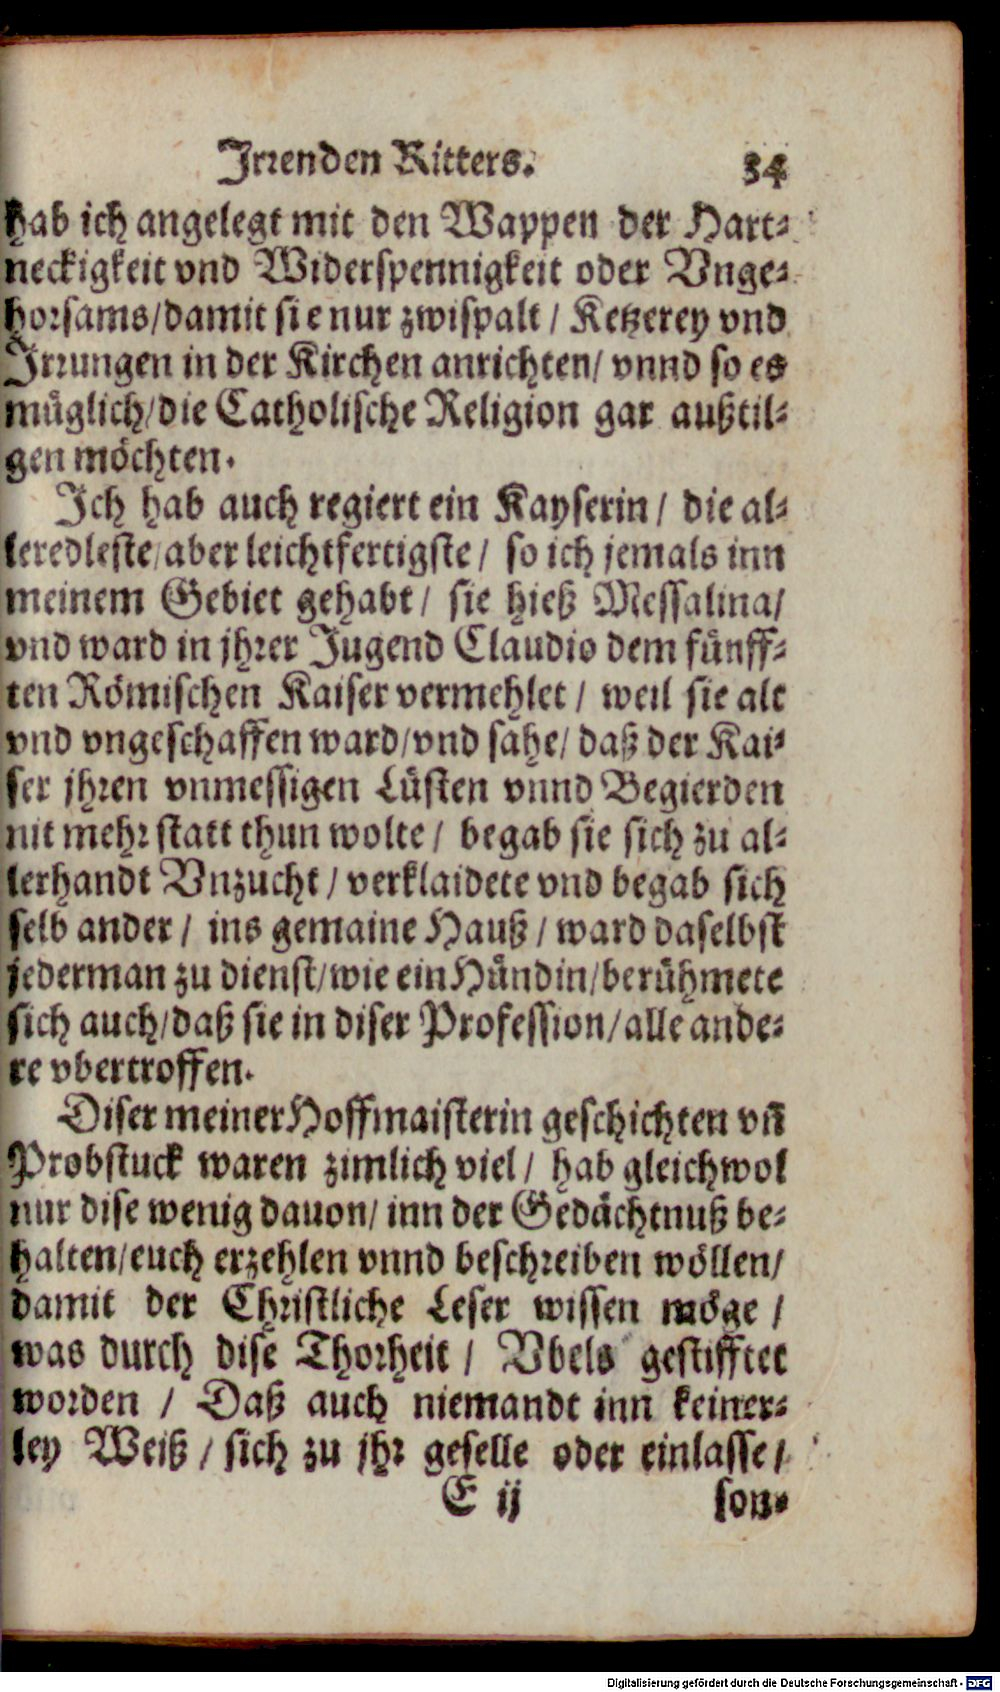 Irrenden Ritters. 34
hab ich angelegt mit den Wappen der Hart-
neckigkeit vnd Widerspennigkeit oder Vnge-
horsams/damit sie nur zwispalt / Ketzerey vnd
Irrungen in der Kirchen anrichten/ vnnd so es
müglich/die Catholische Religion gar außtil-
gen möchten.
Ich hab auch regiert ein Kayserin / die al-
leredleste/aber leichtfertigste / so ich jemals inn
meinem Gebiet gehabt / sie hieß Messalina/
vnd ward in jhrer Jugend Claudio dem fünff-
ten Römischen Kaiser vermehlet / weil sie alt
vnd vngeschaffen ward/vnd sahe/ daß der Kai-
ser jhren vnmessigen Lüsten vnnd Begierden
nit mehr statt thun wolte / begab sie sich zu al-
lerhandt Vnzucht / verklaidete vnd begab sich
selb ander / ins gemaine Hauß / ward daselbst
jederman zu dienst/wie ein Hündin/berühmete
sich auch/daß sie in diser Profession/alle ande-
re vbertroffen.
Diser meiner Hoffmaisterin geschichten vñ
Probstuck waren zimlich viel / hab gleichwol
nur dise wenig dauon/ inn der Gedächtnuß be-
halten/euch erzehlen vnnd beschreiben wöllen/
damit der Christliche Leser wissen möge /
was durch dise Thorheit / Vbels gestifftet
worden / Daß auch niemandt inn keiner-
ley Weiß / sich zu jhr geselle oder einlasse /
E ij son-
Digitalisierung gefördert durch die Deutsche Forschungsgemeinschaft - DFG